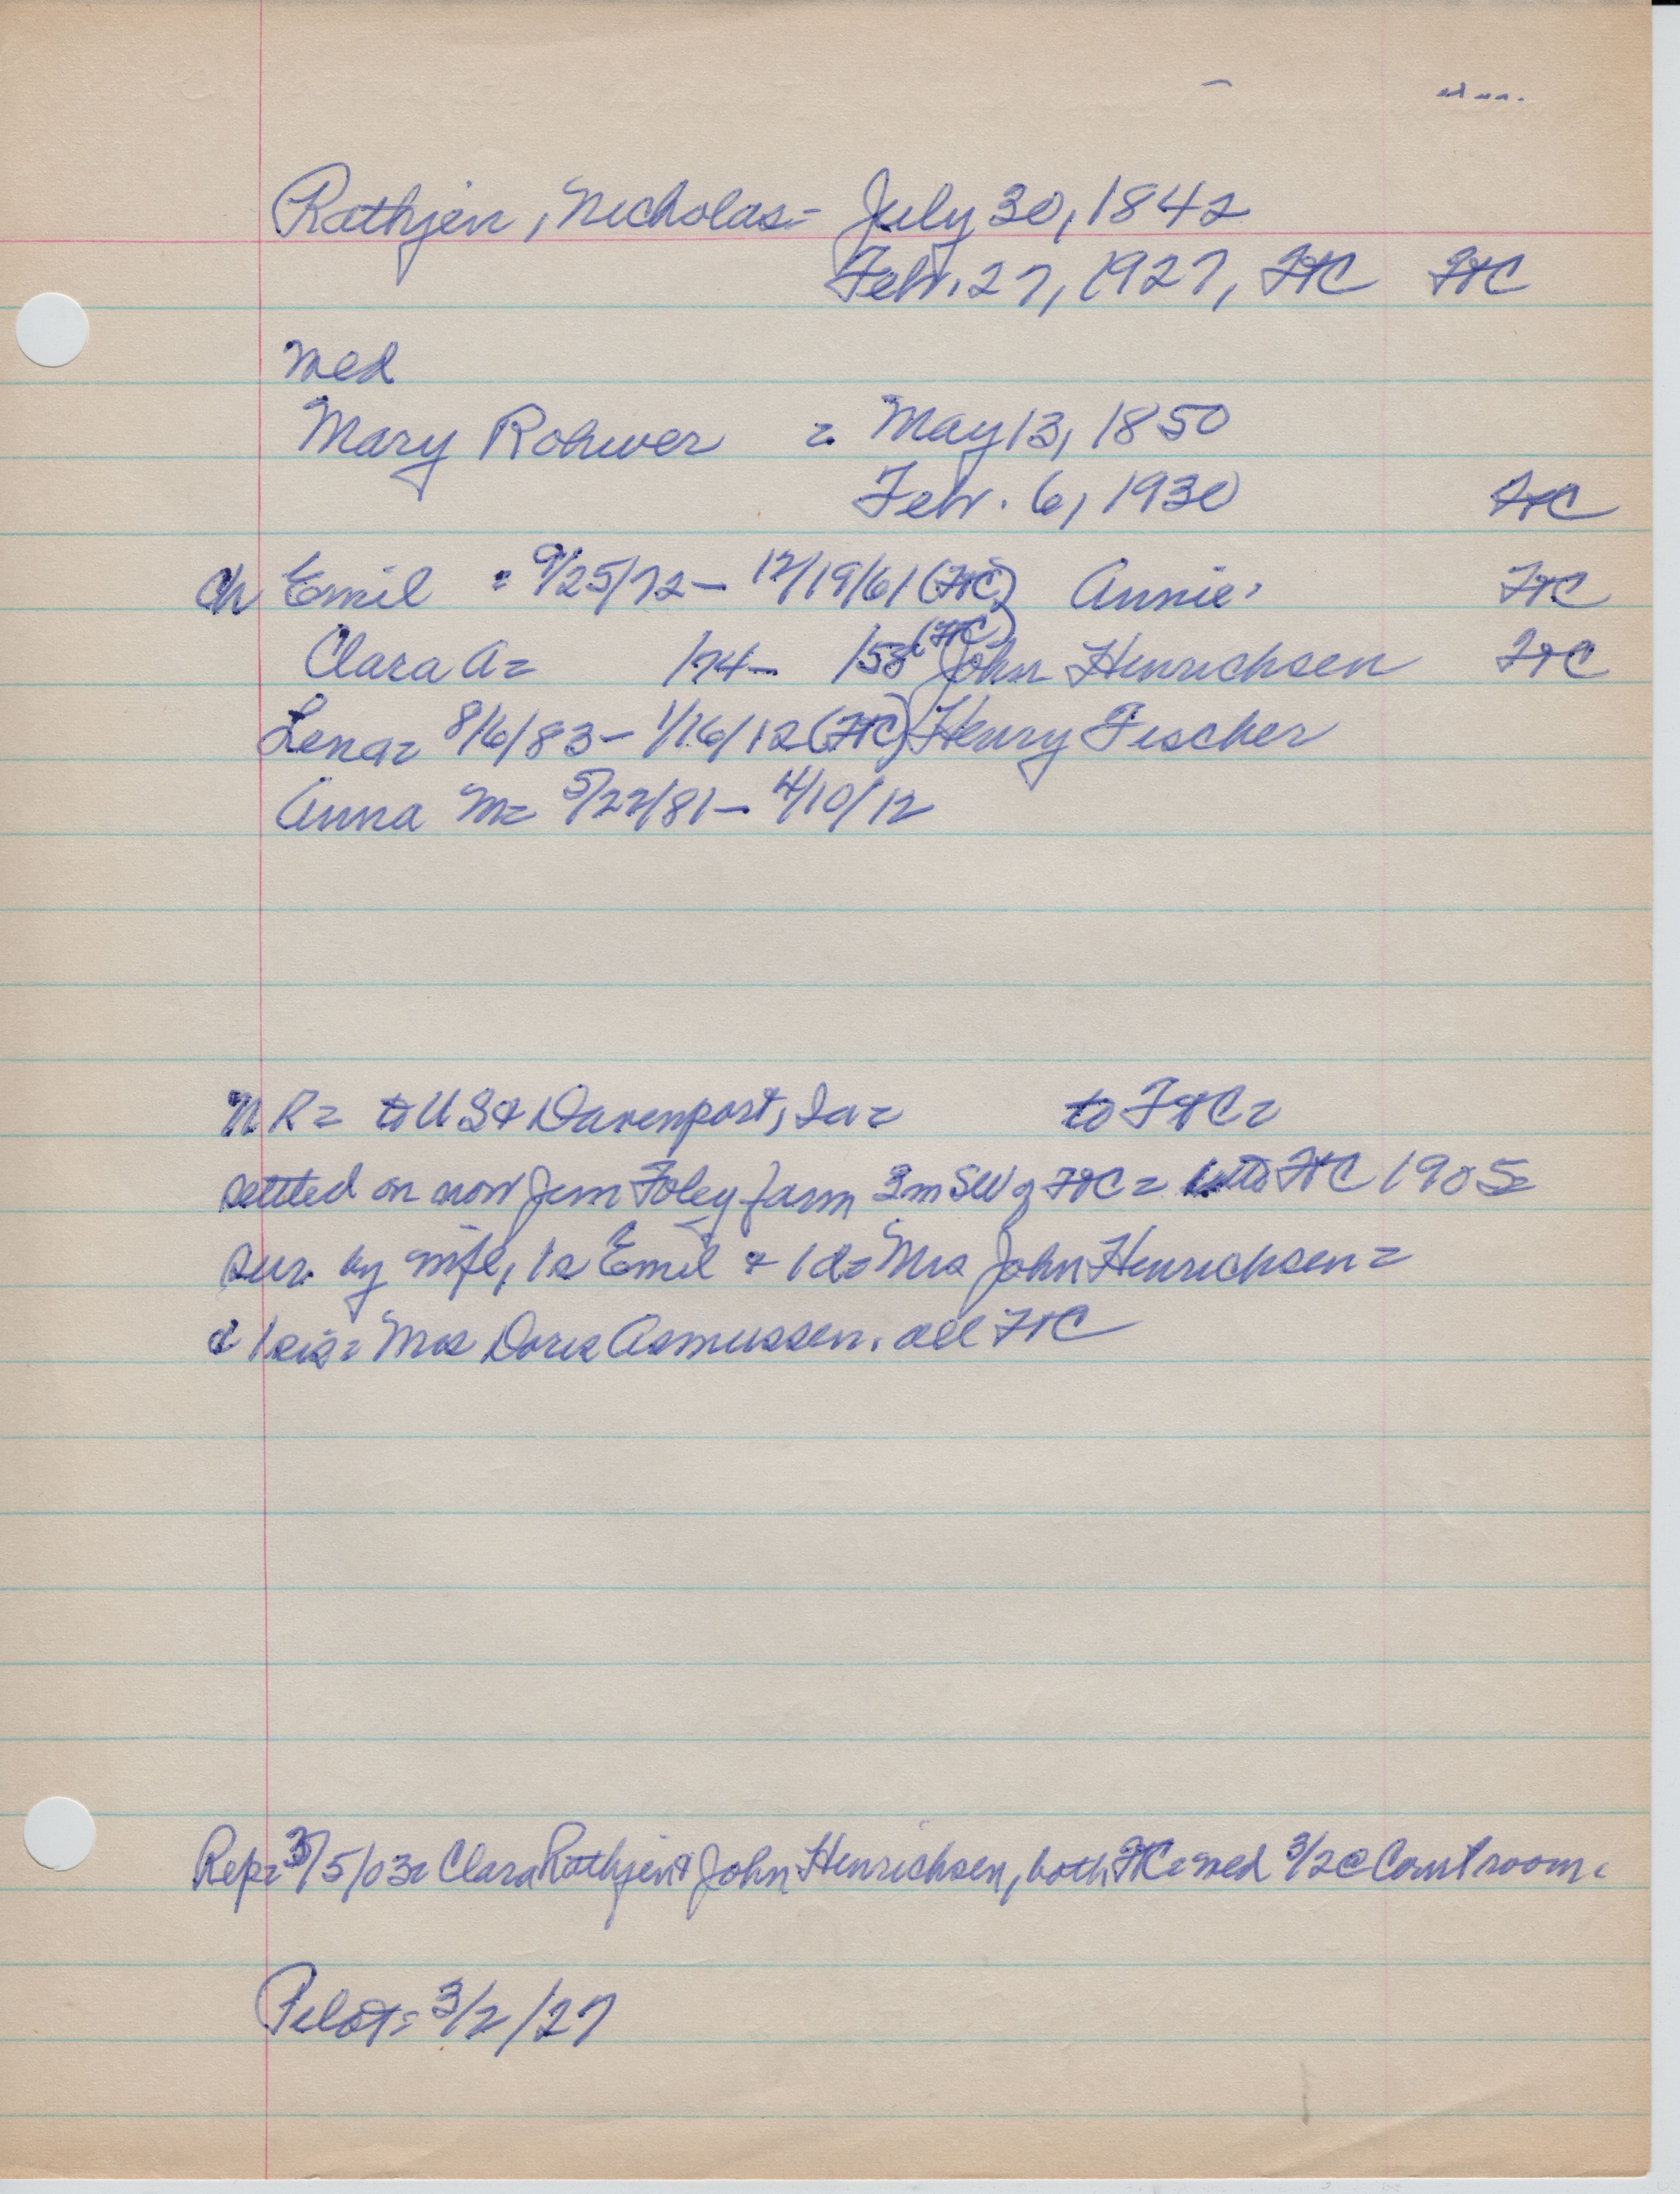 Rathjen, Nicholas = July 30, 1842
Febr. 27, 1927, FtC FtC
med
Mary Rohwer = May 13, 1850
Febr. 6, 1930 FtC
Ch Emil = 9/25/72 – 12/19/61 (FtC) Annie, FtC
Clara A = /74 – /58 (FtC) John Hinrichsen FtC
Lena = 8/6/83 – 1/16/12 (FtC) Henry Fischer
Anna M = 5/22/81 – 4/10/12
NR = to US & Davenport, Ia = to FtC =
settled on now Jim Foley farm 3m SW of FtC = into FtC 1905 =
sur. by wife, 1s Emil & 1d = Mrs John Hinrichsen =
& 1 sis = Mrs Doris Asmussen. all FtC
Rep = 3/5/03 = Clara Rathjen & John Hinrichsen, both FtC = med 3/2 @ Court room.
Pilot = 3/2/27